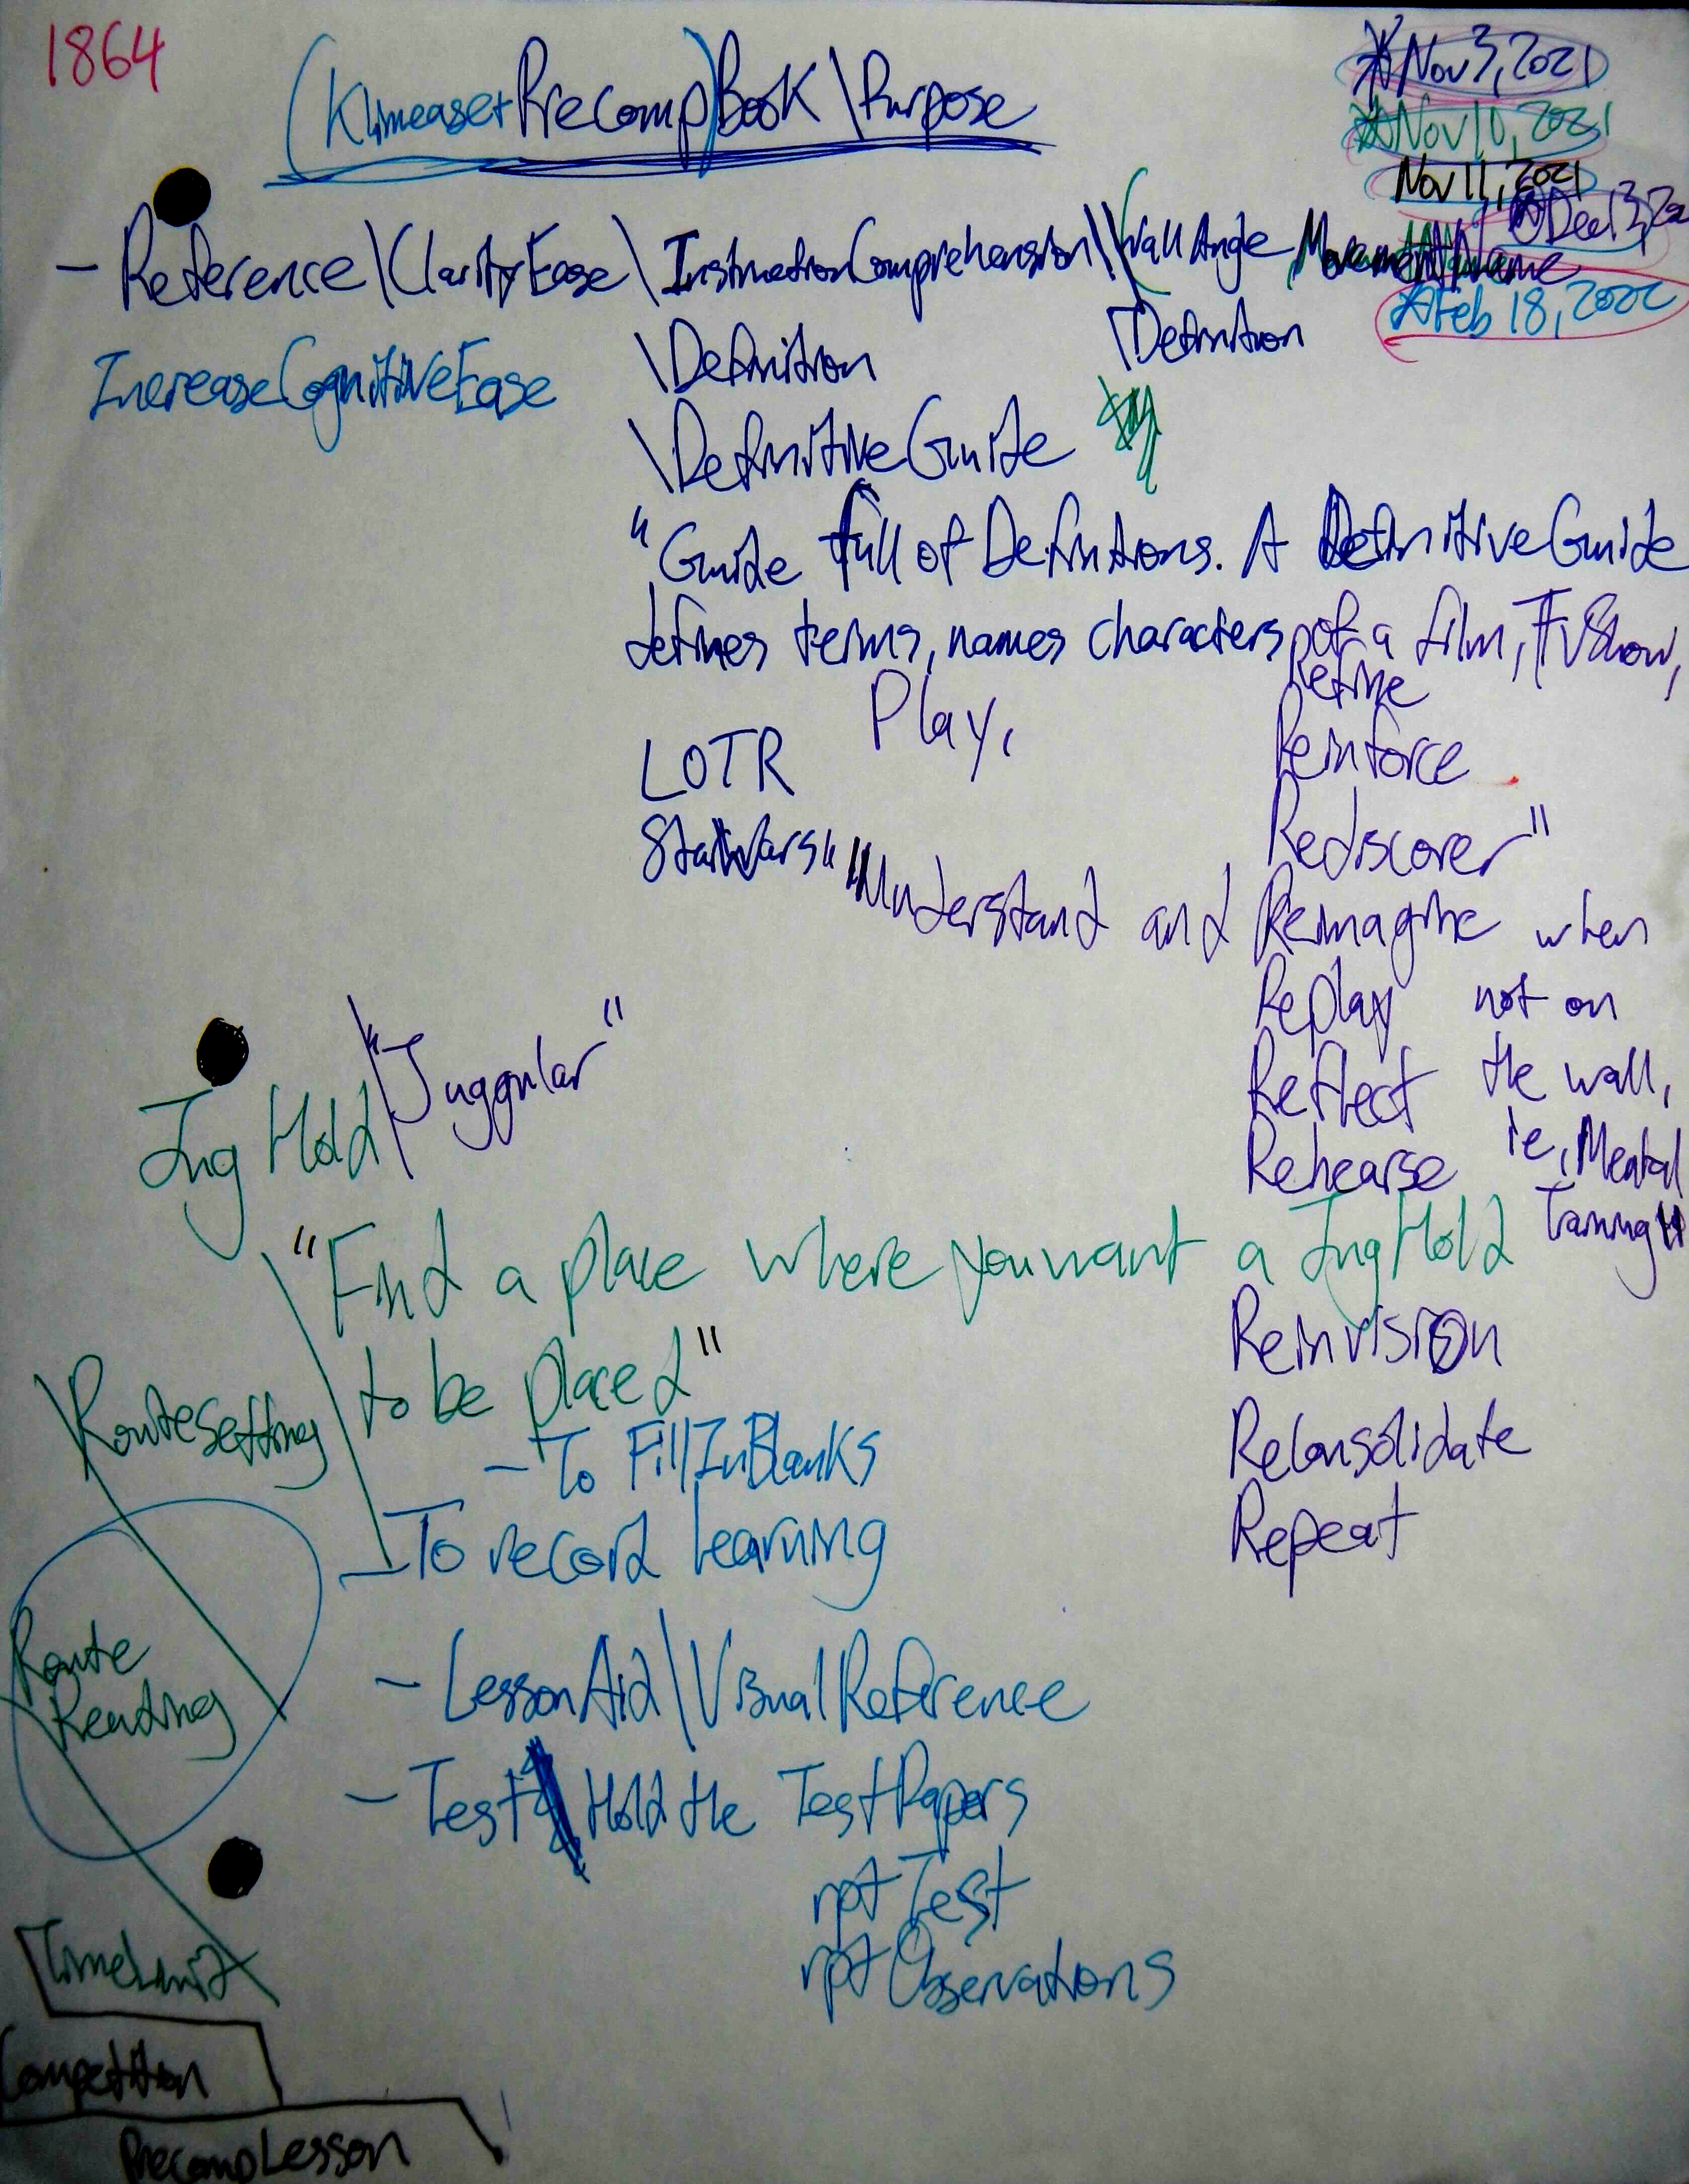 1864
(Klimeaset PreComp) Book \ Purpose
*Nov 3, 2021
*Nov 10, 2021
Nov 11, 2021
- Reference \ ClarityEase \ InstructionComprehension \\ (WallAngle, MovementName
*Feb 18, 2022
IncreaseCognitiveEase
\Definition
\Definition
\DefinitiveGuide
"Guide full of Definitions. A DefinitiveGuide
defines terms, names characters, of a film, TVShow,
Play,
LOTR
StarWars"
Refine
Reinforce
Rediscover"
"Understand and Reimagine when
Replay not on
Reflect the wall,
Rehearse ie, Mental
Training"
Reinvision
Reconsolidate
Repeat
JugHold \ "Juggular"
"Find a place where you want a JugHold
to be placed"
\RouteSetting
- To FillInBlanks
- To record learning
Route
Reading
- LessonAid \ VisualReference
- Test Hold the TestPapers
rpt Test
rpt Observations
TimeLimit
Competition
PrecompLesson